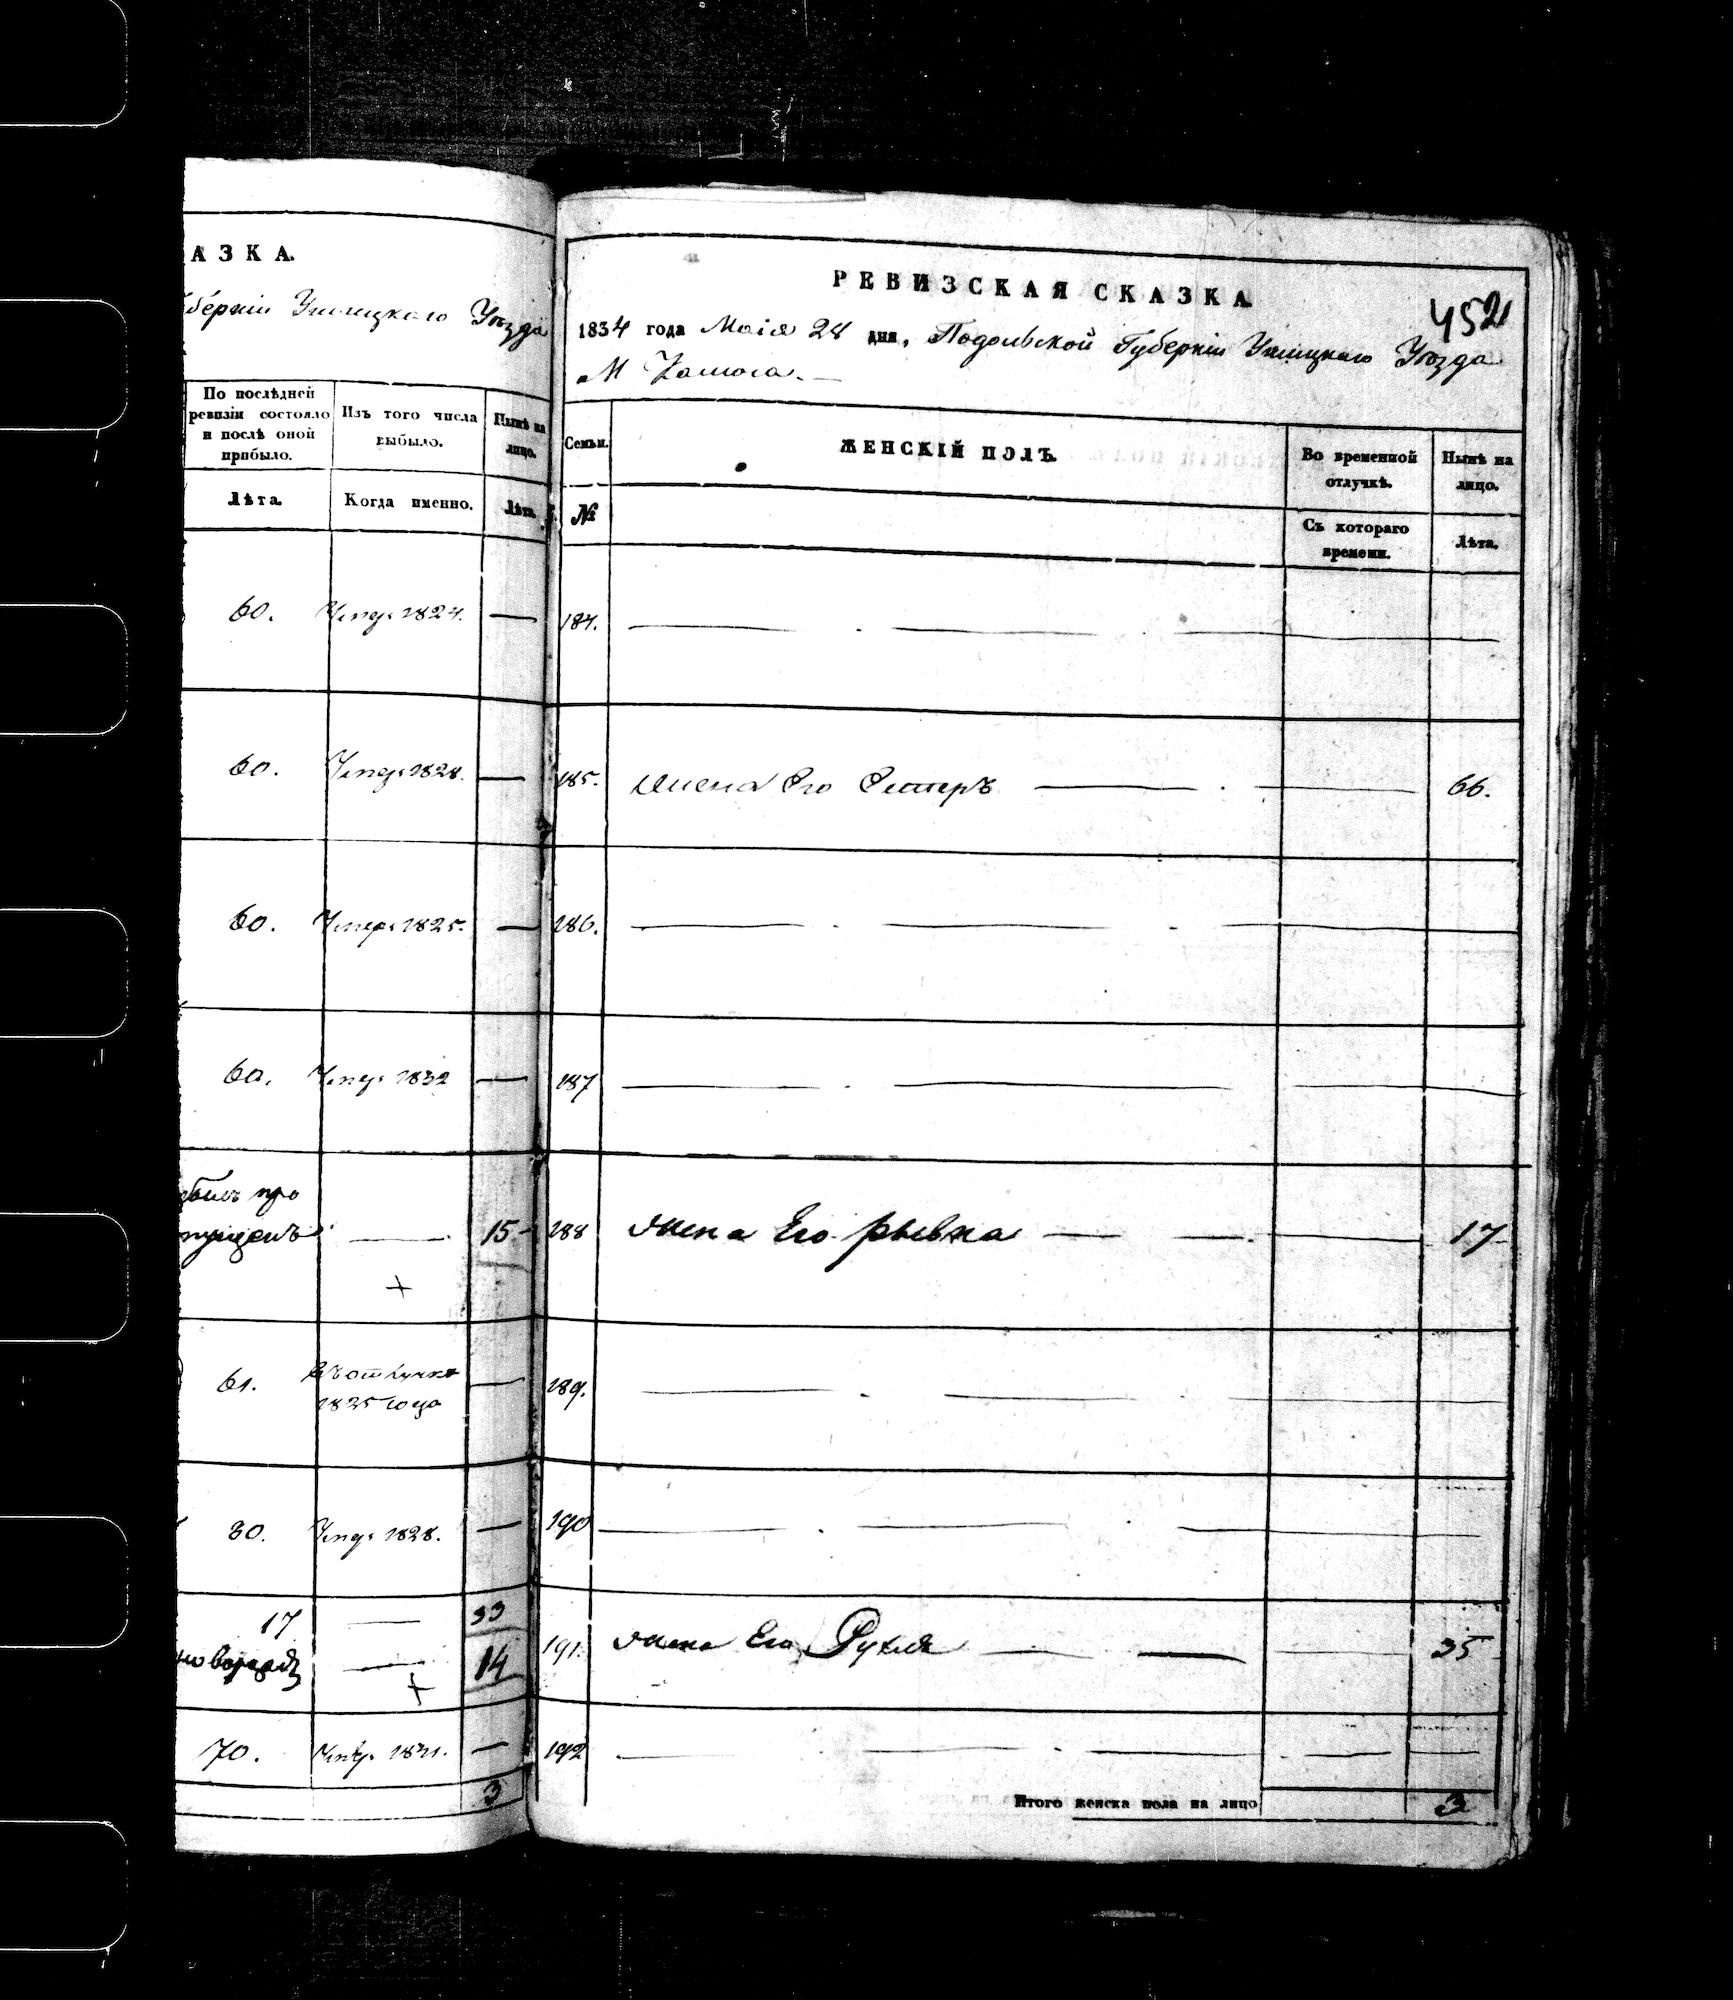 АЗКА.
Губерніи Ушицкаго Уѣзда
По послѣдней ревизіи состояло и послѣ оной прибыло.
Изъ того числа выбыло.
Нынѣ на лицо.
Лѣта.
Когда именно.
Лѣта.
60. 1824. —
60. 1828. —
60. 1825. —
60. 1832 —
былъ про
пущенъ — 15
+
61. въ отлучкѣ —
1825 года
80. 1828. —
17 — 33
новорожд — 14
+
70. 1831. —
3
РЕВИЗСКАЯ СКАЗКА
452
1834 года Маія 28 дня, Подольской Губерніи Ушицкаго Уѣзда
М
Семьи.
ЖЕНСКІЙ ПОЛЪ.
Во временной отлучкѣ.
Нынѣ на лицо.
№
Съ котораго времени.
Лѣта.
184. —
185. жена Его Естеръ — 66.
186. —
187 —
188 жена Его Рывка — 17
189. —
190 —
191. жена Его Рухля — 35
192 —
Итого женска пола на лицо 3